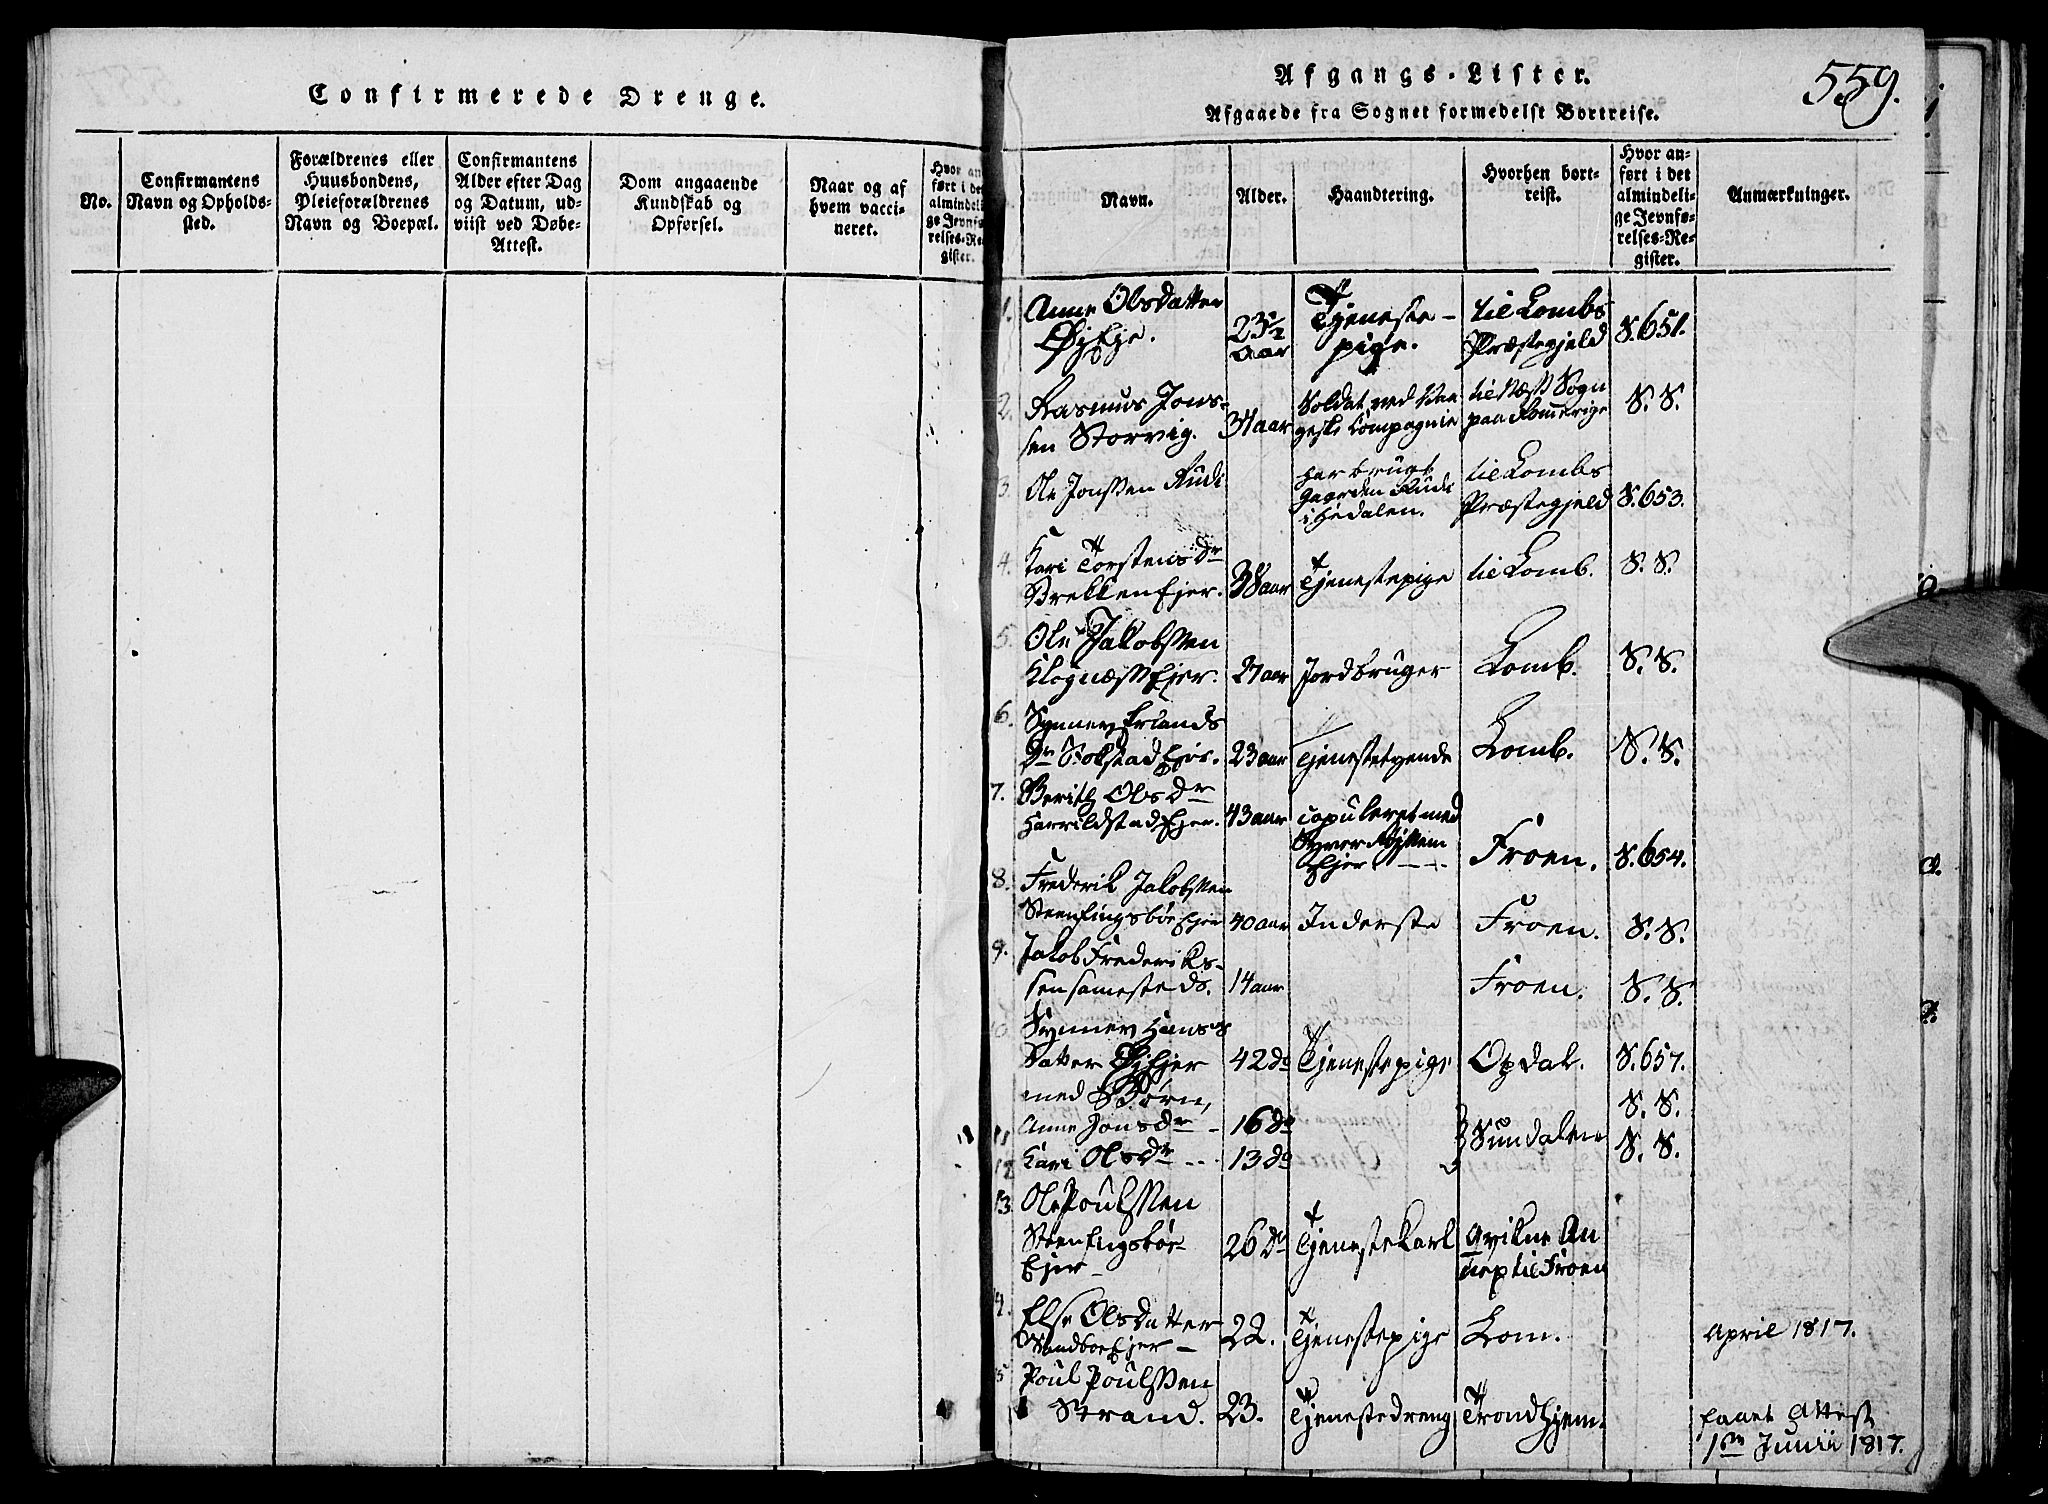 Confirmerede Drenge.
No.
Confirmantens
Navn og Opholds-
sted.
Forældrenes eller
Huusbondens,
Pleieforældrenes
Navn og Boepæl.
Confirmantens
Alder efter Dag
og Datum, ud-
viist ved Døbe-
Attest.
Dom angaaende
Kundskab og
Opførsel.
Naar og af
hvem vacci-
neret.
Hvor an
ført i det
almindeli
ge Jevnfø
relses-Re
gister.
Afgangs-Lister.
559.
Afgaaede fra Sognet formedelst Bortreise.
Navn.
Alder.
Haandtering.
Hvorhen bort-
reist.
Hvor an-
ført i det
almindeli-
ge Jevnfø-
relses-Re-
gister.
Anmærkninger.
1. Anne Olsdatter Tjeneste- til Lombs
23½ aar pige. Præstegjeld S. 651.
2. Rasmus Jons- Soldat ved Vaa til Næss Sogn S. S.
sen Storvig. geske Compagnie paa Romerige
3. Ole Jonssen Rudi har brugt til Lombs
Gaarden Rudi Præstegjeld S. 653.
i Hedalen.
4. Kari Torstensdr
BrekkenEjer. 38 aar Tjenestepige til Lomb. S. S.
5. Ole Jakobssen
KlognæssEjer. 27 aar Jordbruger Lomb. S. S.
6. Synnev Erlands
Dr SolstadEjer. 23 aar Tjenestetyende Lomb. S. S.
7. Berith Olsdr
HarrildstadEjer. 43 aar copuleret med
Syver
Ejer Froen. S. 654.
8. Frederik Jakobssen
SteenEngsbøeEjer 40 aar Inderste Froen. S. S.
9. Jakob Frederiks-
sen sammesteds. 14 aar Froen. S. S.
10 Synnev Hans
Datter ØyEjer 42 do Tjenestepige Opdal. S. 657.
med Børn,
11 Anne Jonsdr - 16 do S. S.
Sundalen
12 Kari Olsdr - - 13 do S. S.
13. Ole Poulssen
SteenEngsbøe-
Ejer 26 do Tjenestekarl til Froen
14. Else Olsdatter
SandboeEjer - 22. Tjenestepige Lom. April 1817.
15 Poul Poulssen
Strand. 23. Tjenestedreng Trondhjem. faaet Attest
1ste Junii 1817.